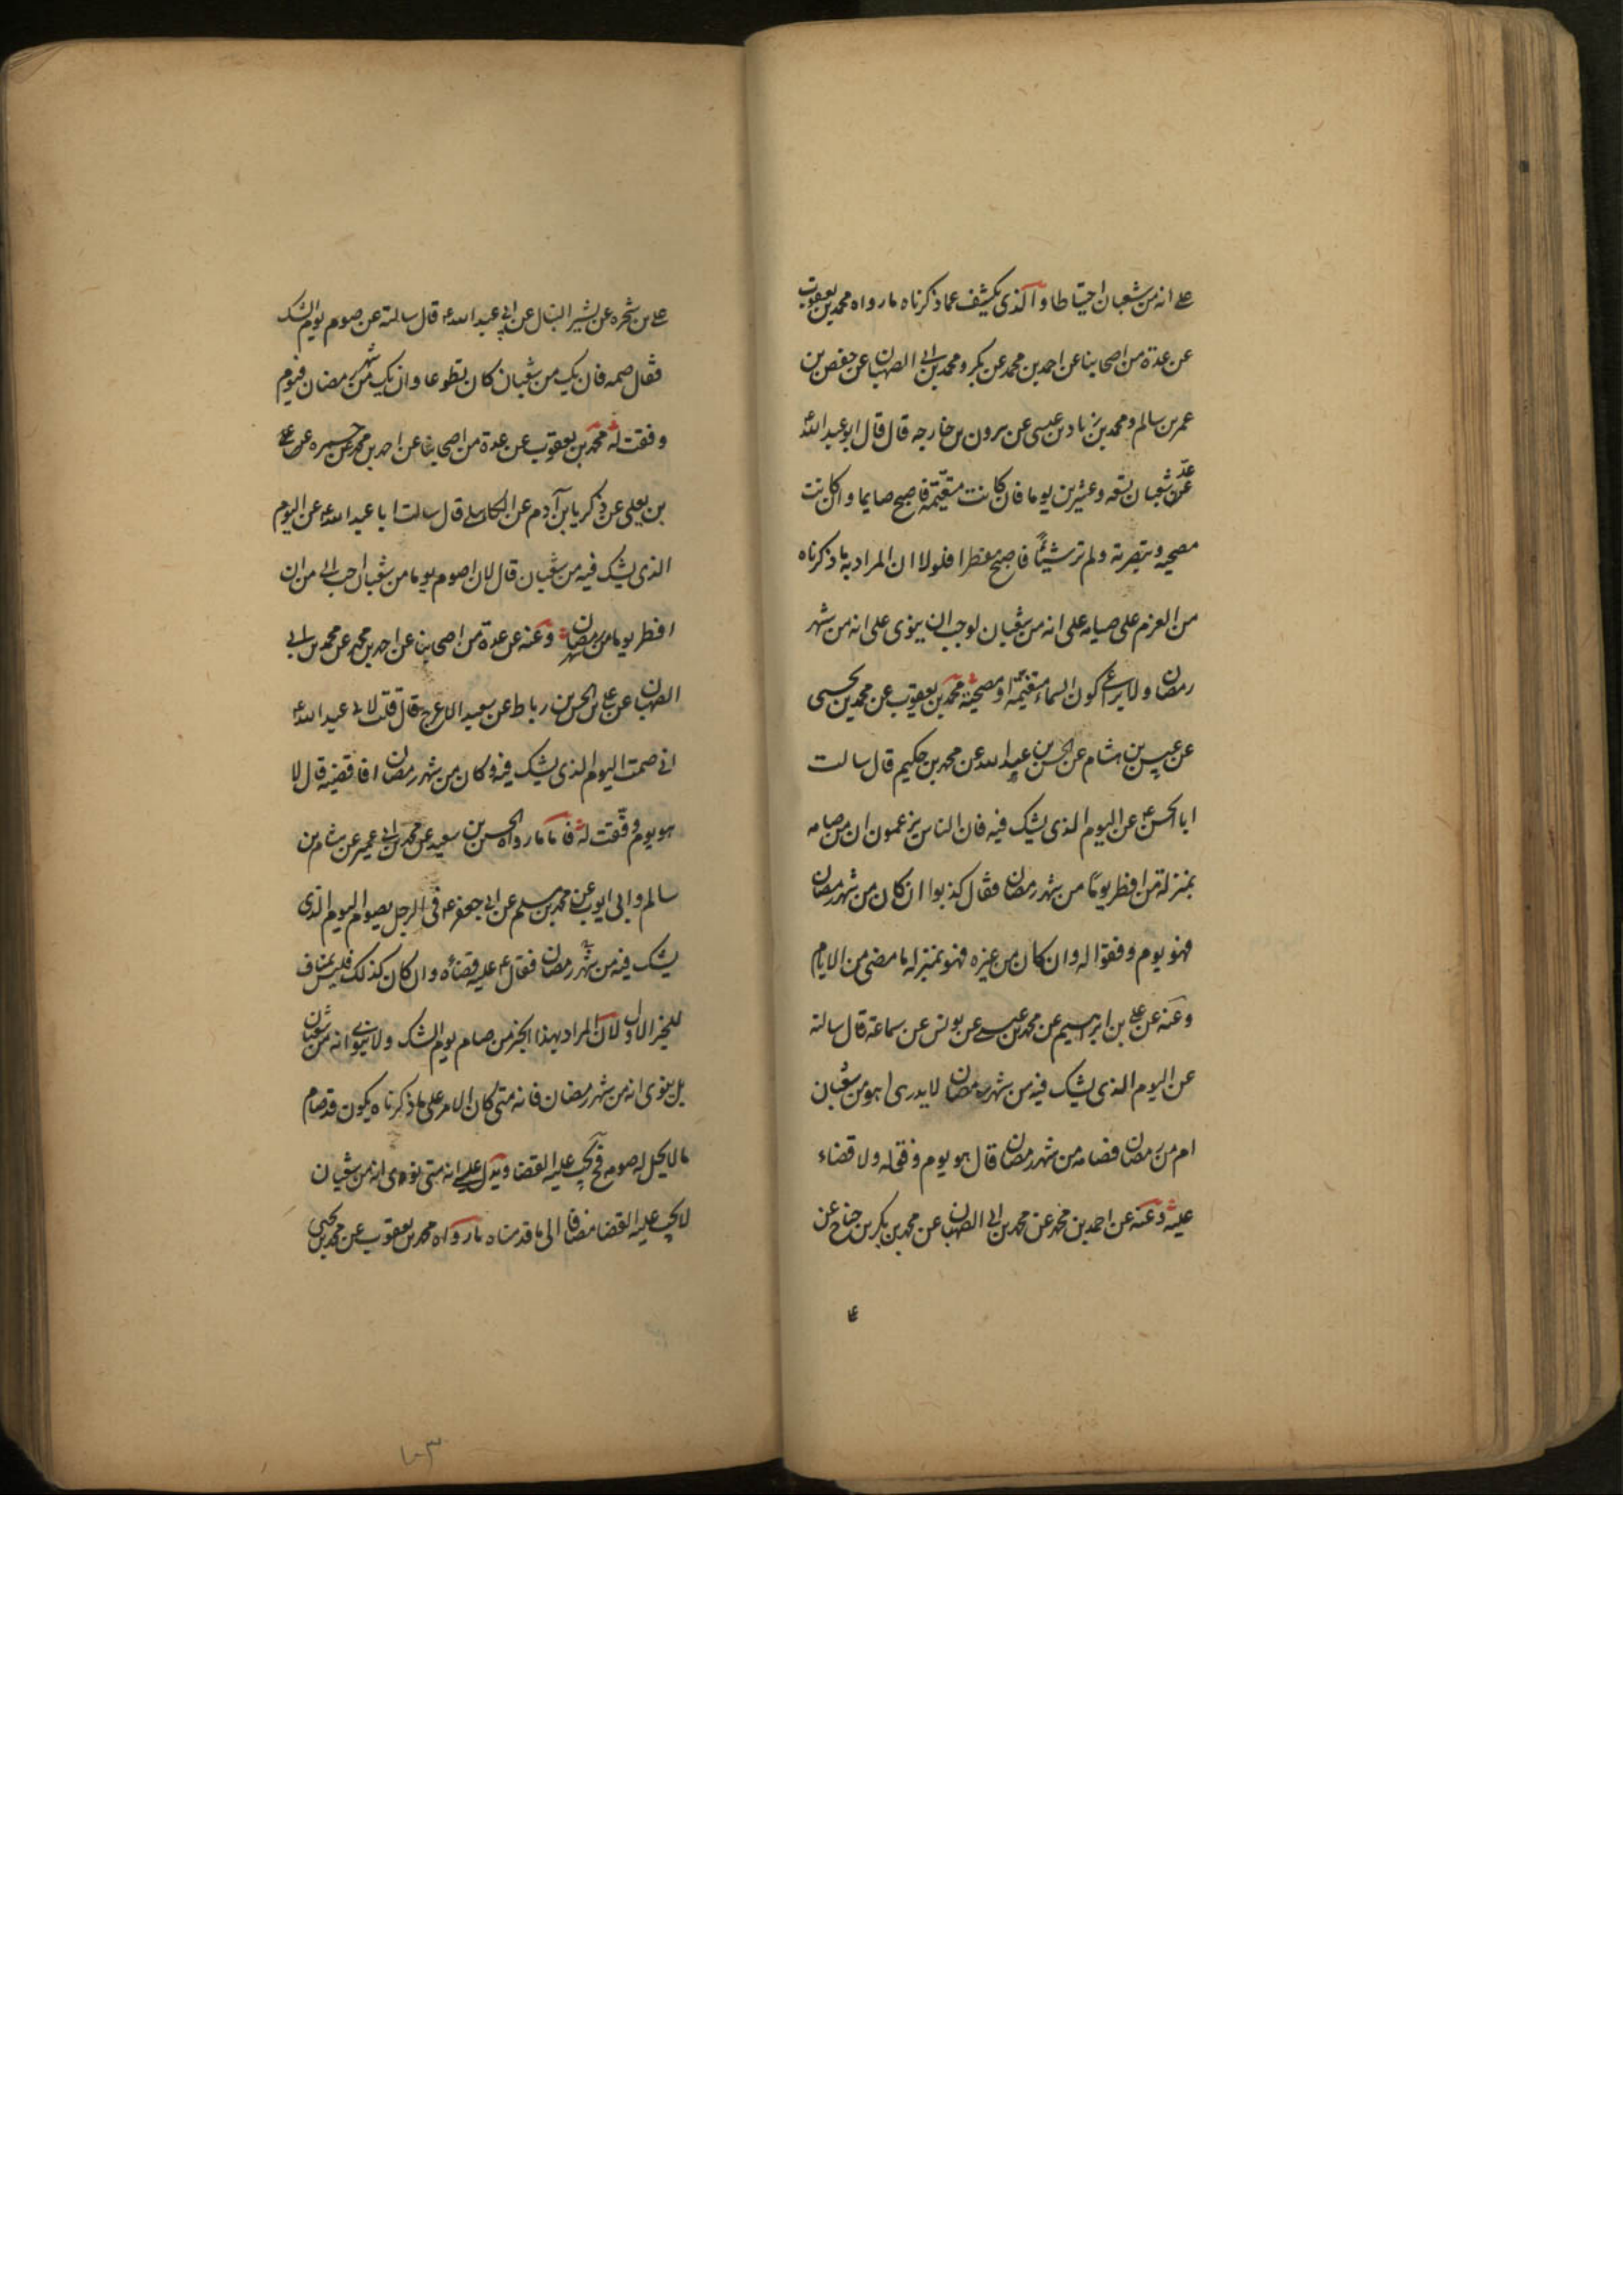 على انه من شعبان احتياطا والذى يكشف عما ذكرناه ما رواه محمد بن يعقوب
عن عدة من اصحابنا عن احمد بن محمد عن بكر ومحمد بن ابى الصهبان عن حفص بن
عمر بن سالم ومحمد بن زياد بن عيسى عن هرون بن خارجه قال قال ابو عبد الله ع
عد شعبان تسعه وعشرين يوما فان كانت متغيمة فاصبح صايما وان كانت
مصحيه وتبصرته ولم تر شيئا فاصبح مفطرا فلولا ان المراد به ما ذكرناه
من العزم على صيامه على انه من شعبان لوجب ان ينوى على انه من شهر
رمضان ولا يراعى كون السماء متغيمة او مصحية محمد بن يعقوب عن محمد بن يحيى
عن بن هشام عن الحسن بن عبد الله عن محمد بن حكيم قال سالت
ابا الحسن ع عن اليوم الذى يشك فيه فان الناس يزعمون ان من صامه
بمنزلة من افطر يوما من شهر رمضان فقال كذبوا ان كان من شهر رمضان
فهو يوم وفقوا له وان كان من غيره فهو بمنزله ما مضى من الايام
وعنه عن على بن ابرهيم عن محمد بن عيسى عن يونس عن سماعة قال سالته
عن اليوم الذى يشك فيه من شهر رمضان لا يدرى اهو من شعبان
ام من رمضان فصامه من شهر رمضان قال هو يوم وفق له ولا قضاء
عليه وعنه عن احمد بن محمد عن محمد بن ابى الصهبان عن محمد بن بكر بن جناح عن
على بن شجره عن بشير النبال عن ابى عبد الله ع قال سالته عن صوم يوم الشك
فقال صمه فان يك من شعبان كان تطوعا وان يك من شهر رمضان فيوم
وفقت له محمد بن يعقوب عن عدة من اصحابنا عن احمد بن محمد عن حمزه
بن يعلى عن زكريا بن آدم عن الكاهلى قال سالت ابا عبد الله ع عن اليوم
الذى يشك فيه من شعبان قال لان اصوم يوما من شعبان احب الى من ان
افطر يوما من شهر رمضان وعنه عن عدة من اصحابنا عن احمد بن محمد عن محمد بن ابى
الصهبان عن على بن الحسن بن رباط عن سعيد الاعرج قال قلت لابى عبد الله ع
انى صمت اليوم الذى يشك فيه وكان من شهر رمضان افاقضيه قال لا
هو يوم وفقت له فاما ما رواه الحسين بن سعيد عن محمد بن ابى عمير عن هشام بن
سالم وابى ايوب عن محمد بن مسلم عن ابى جعفر ع فى الرجل يصوم اليوم الذى
يشك فيه من شهر رمضان فقال ع عليه قضاؤه وان كان كذلك فليس بمناف
للخبر الاول لان المراد بهذا الخبر من صام يوم الشك ولا ينوى انه من شعبان
بل ينوى انه من شهر رمضان فانه متى كان الامر على ما ذكرناه يكون قد صام
ما لا يحل له صومه فح يجب عليه القضا ويدل على انه متى نوى انه من شعبان
لا يجب عليه القضا مضافا الى ما قدمناه ما رواه محمد بن يعقوب عن محمد بن يحيى